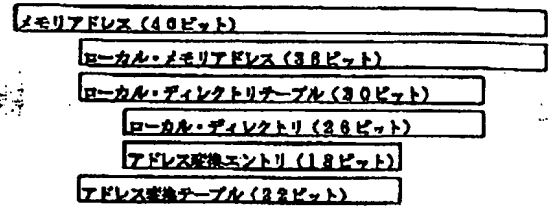 メモリアドレス(40ビット)
ローカル・メモリアドレス(36ビット)
ローカル・ディレクトリテーブル(30ビット)
ローカル・ディレクトリ(26ビット)
アドレス変換エントリ(18ビット)
アドレス変換テーブル(22ビット)